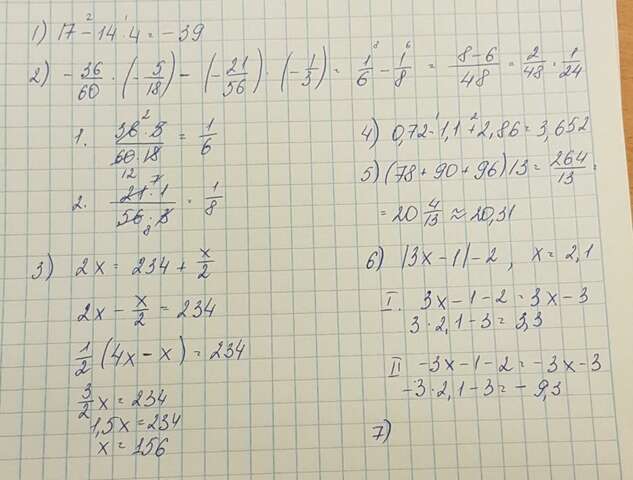 1) 17 - 14 · 4 = -39
2) - 36/60 · (- 5/18) - (- 21/56) · (- 1/3) = 1/6 - 1/8 = 8-6/48 = 2/48 · 1/24
1. 36 · 5/60 · 18 = 1/6
2. 21 · 1/56 · 3 · 1/8
3) 2x = 234 + x/2
2x - x/2 = 234
1/2 (4x - x) = 234
3/2 x = 234
1,5x = 234
x = 156
4) 0,72 · 1,1 + 2,86 = 3,652
5) (78 + 90 + 96) 13 = 264/13 =
= 20 4/13 ≈ 20,31
6) |3x - 1| - 2 , x = 2,1
I. 3x - 1 - 2 = 3x - 3
3 · 2,1 - 3 = 3,3
II -3x - 1 - 2 = -3x - 3
-3 · 2,1 - 3 = - 9,3
7)